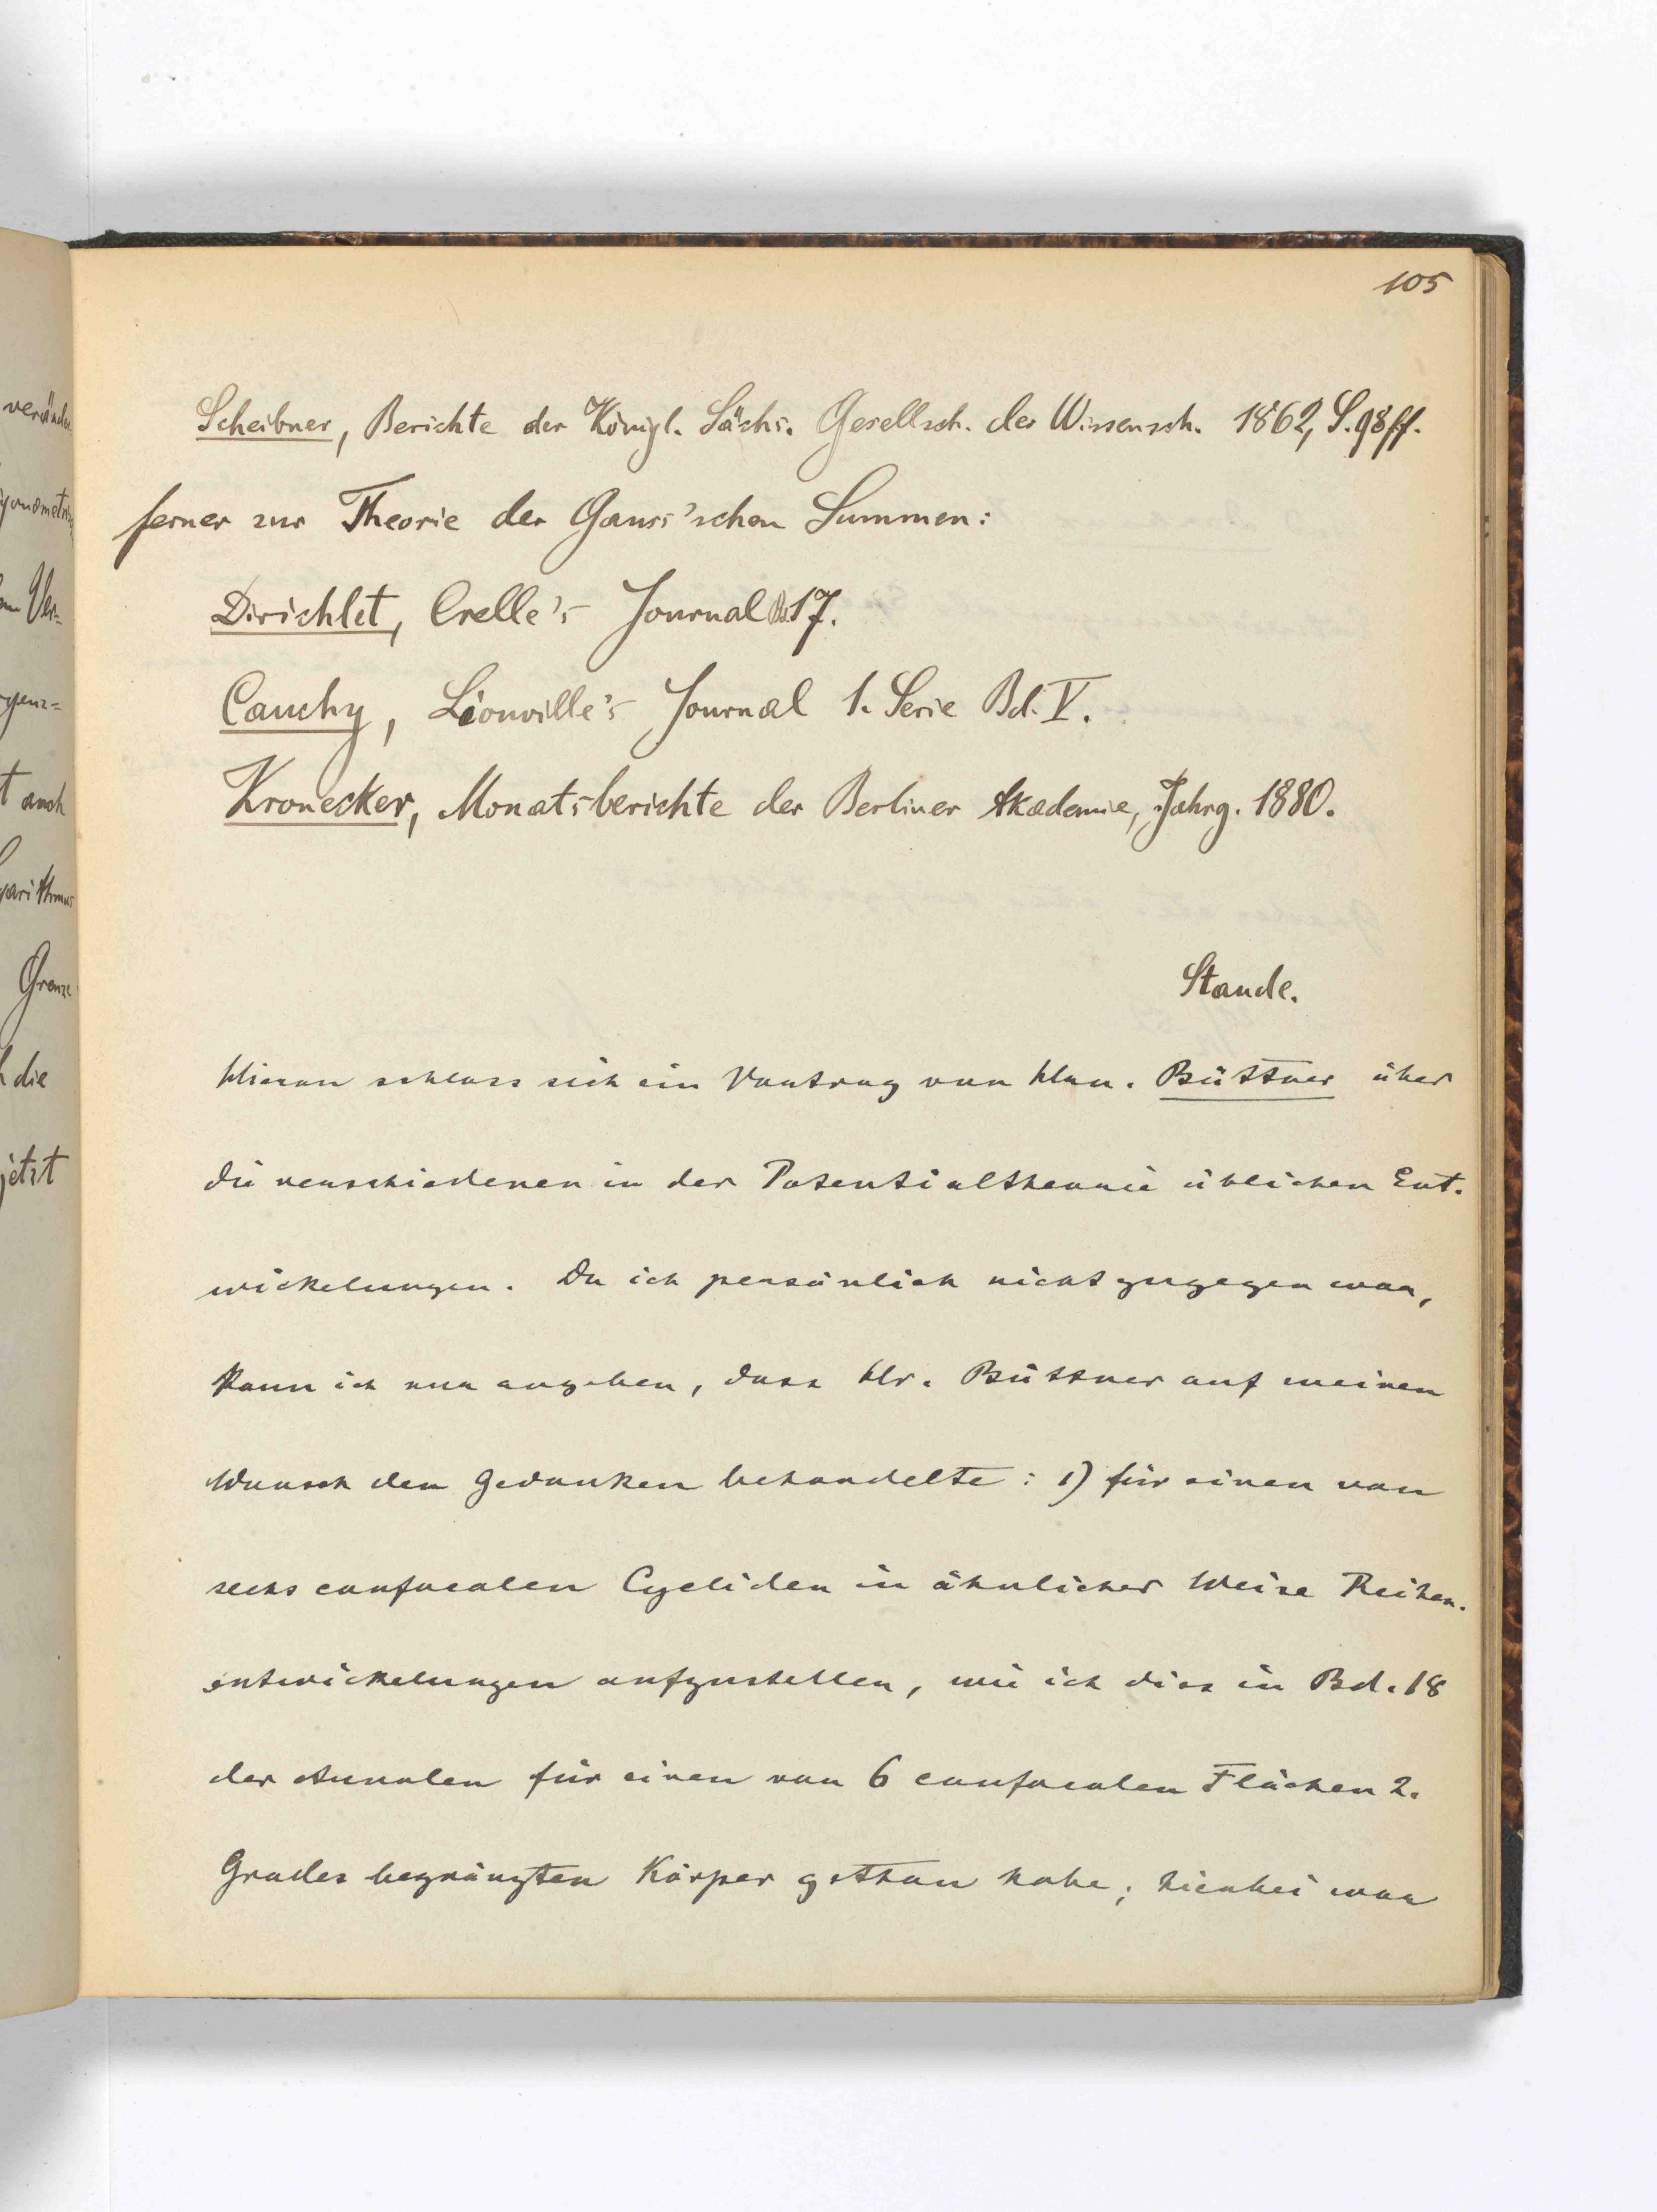 105
verände
ygonometri
Ver-
genz-
t auch
garithmus
Grenze
die
jetzt
Scheibner, Berichte der Königl. Sächs. Gesellsch. der Wissensch. 1862, S. 98 ff.
ferner zur Theorie der Gauss'schen Summen:
Dirichlet, Crelle's Journal Bd. 17.
Cauchy, Liouville's Journal 1. Serie Bd. V.
Kronecker, Monatsberichte der Berliner Akademie, Jahrg. 1880.
Staude.
Hieran schloss sich ein Vortrag von Hrn. Büttner über
die verschiedenen in der Potentialtheorie üblichen Ent-
wickelungen. Da ich persönlich nicht zugegen war,
kann ich nur angeben, dass Hr. Büttner auf meinen
Wunsch den Gedanken behandelte: 1) für einen von
sechs confocalen Cycliden in ähnlicher Weise Reihen-
entwickelungen aufzustellen, wie ich dies in Bd. 18
der Annalen für einen von 6 confocalen Flächen 2.
Grades begränzten Körper gethan habe; hierbei war